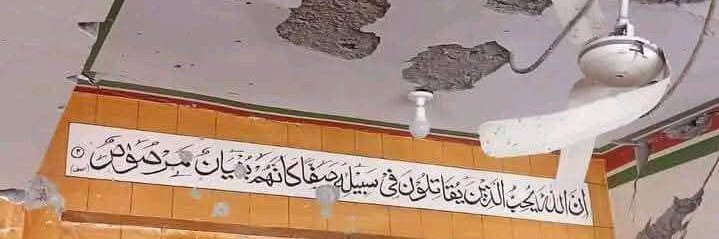 ان الله يحب الذين يقاتلون في سبيله صفا كانهم بنيان مرصوص